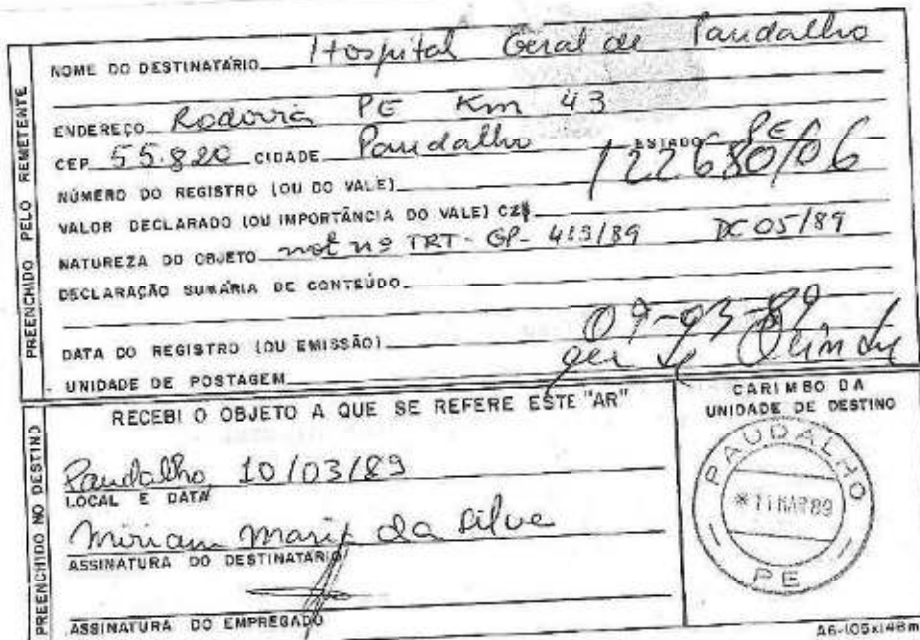 PREENCHIDO PELO REMETENTE
NOME DO DESTINATÁRIO Hospital Geral de Paudalho
ENDEREÇO Rodovia PE Km 43
CEP 55.820 CIDADE Paudalho ESTADO PE
NÚMERO DO REGISTRO (OU DO VALE) 122680/06
VALOR DECLARADO (OU IMPORTÂNCIA DO VALE) CZ$
NATUREZA DO OBJETO not nº TRT-GP-419/89 DC 05/89
DECLARAÇÃO SUMÁRIA DE CONTEÚDO
DATA DO REGISTRO (OU EMISSÃO) 09-03-89
UNIDADE DE POSTAGEM
PREENCHIDO NO DESTINO
RECEBI O OBJETO A QUE SE REFERE ESTE "AR"
Paudalho, 10/03/89
LOCAL E DATA
Miriam Maria da Silva
ASSINATURA DO DESTINATÁRIO
ASSINATURA DO EMPREGADO
CARIMBO DA
UNIDADE DE DESTINO
PAUDALHO
*11 MAR 89
PE
A6-105x148m